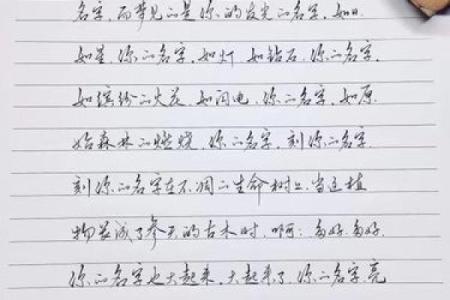 名字，而梦见的是你的发光的名字，如日
如星，你的名字，如灯，如钻石，你的名字，
如缤纷的火花，如闪电，你的名字，如原
始森林的燃烧，你的名字，刻你的名字，
刻你的名字在不凋的生命树上，当这植
物长成了参天的古木时，啊；多好，多好，
你的名字也大起来，大起来了，你的名字，亮